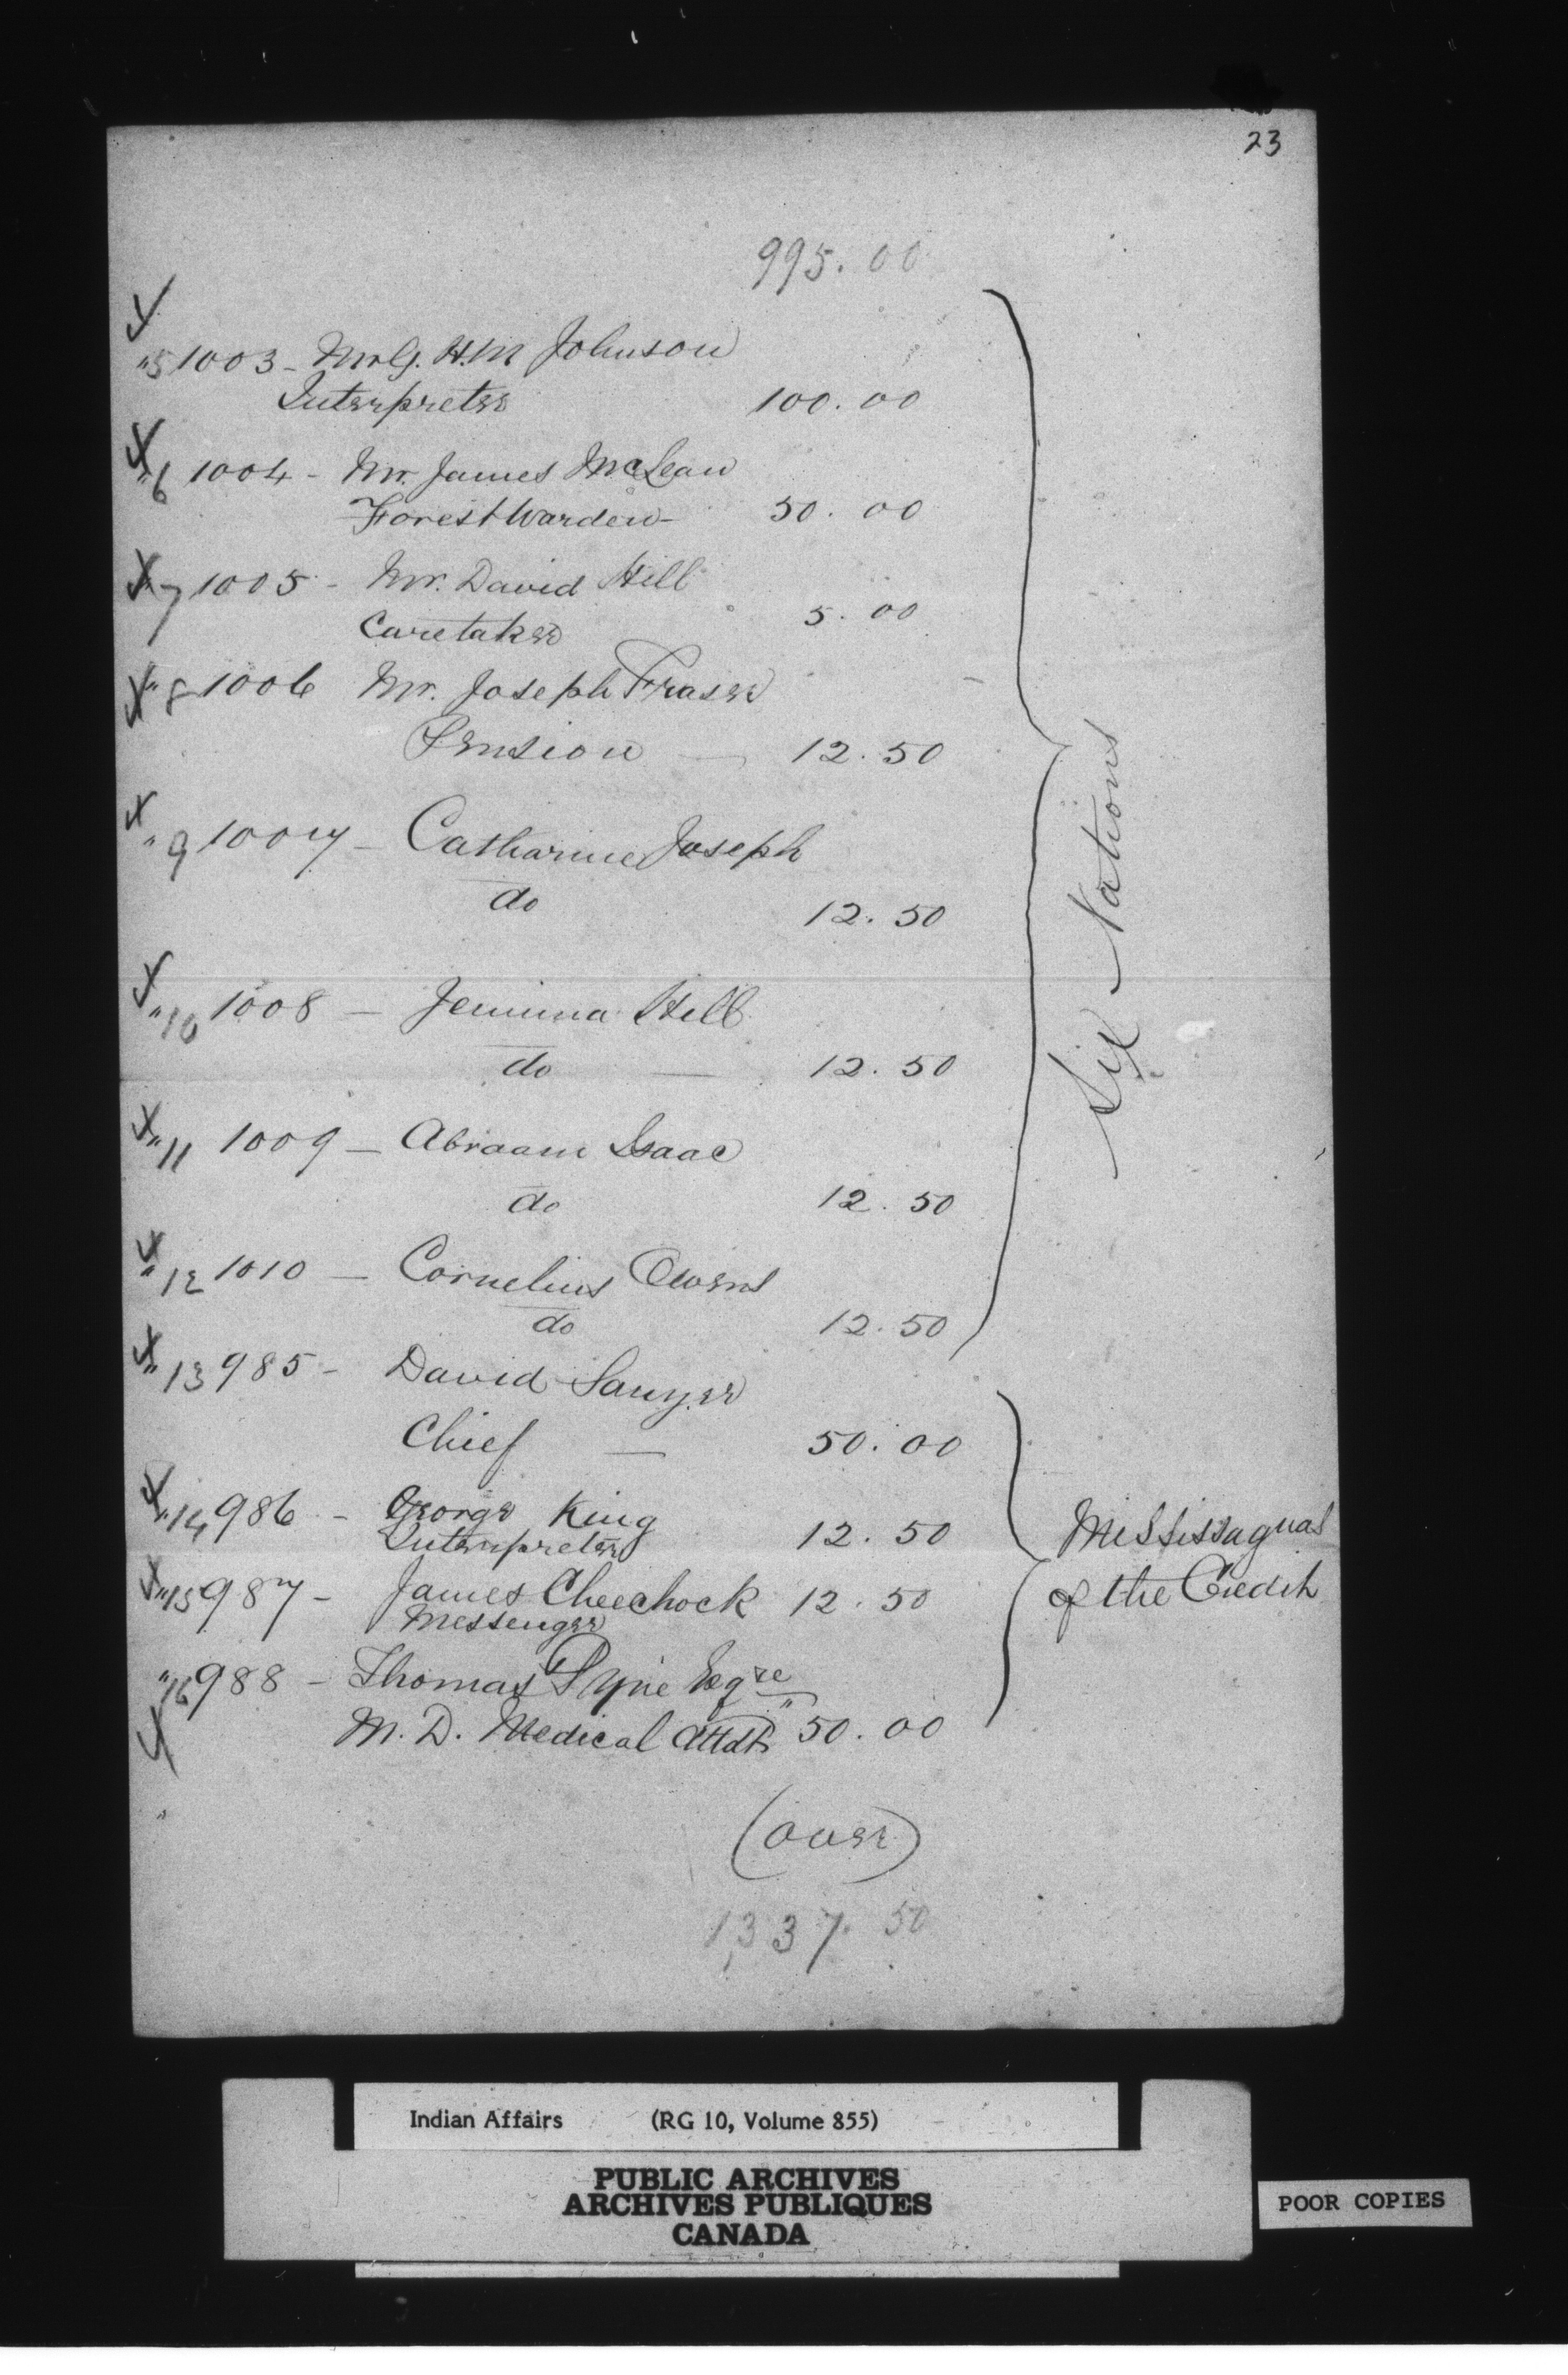 23
995.00
"5 1003 - Mr G. H. M Johnson
Interpreter 100.00
"6 1004 - Mr. James McLean
Forest Warden - 50.00
"7 1005 - Mr. David Hill
Caretaker 5.00
"8 1006 Mr. Joseph Fraser
Pension — 12.50
"9 1007 - Catharine Joseph
do 12.50
"10 1008 — Jemima Hill
do — 12.50
"11 1009 — Abraam Isaac
do 12.50
"12 1010 — Cornelius Owens
do 12.50
Six Nations
"13 985 - David Sawyer
Chief — 50.00
"14 986 - George King
Interpreter 12.50
"15 987 - James Cheechock 12.50
Messenger
"16 988 - Thomas Pyne Esqre
M. D. Medical Attdt 50.00
Mississaguas
of the Credit
(over)
1,337.50
Indian Affairs (RG 10, Volume 855)
PUBLIC ARCHIVES
ARCHIVES PUBLIQUES
CANADA
POOR COPIES